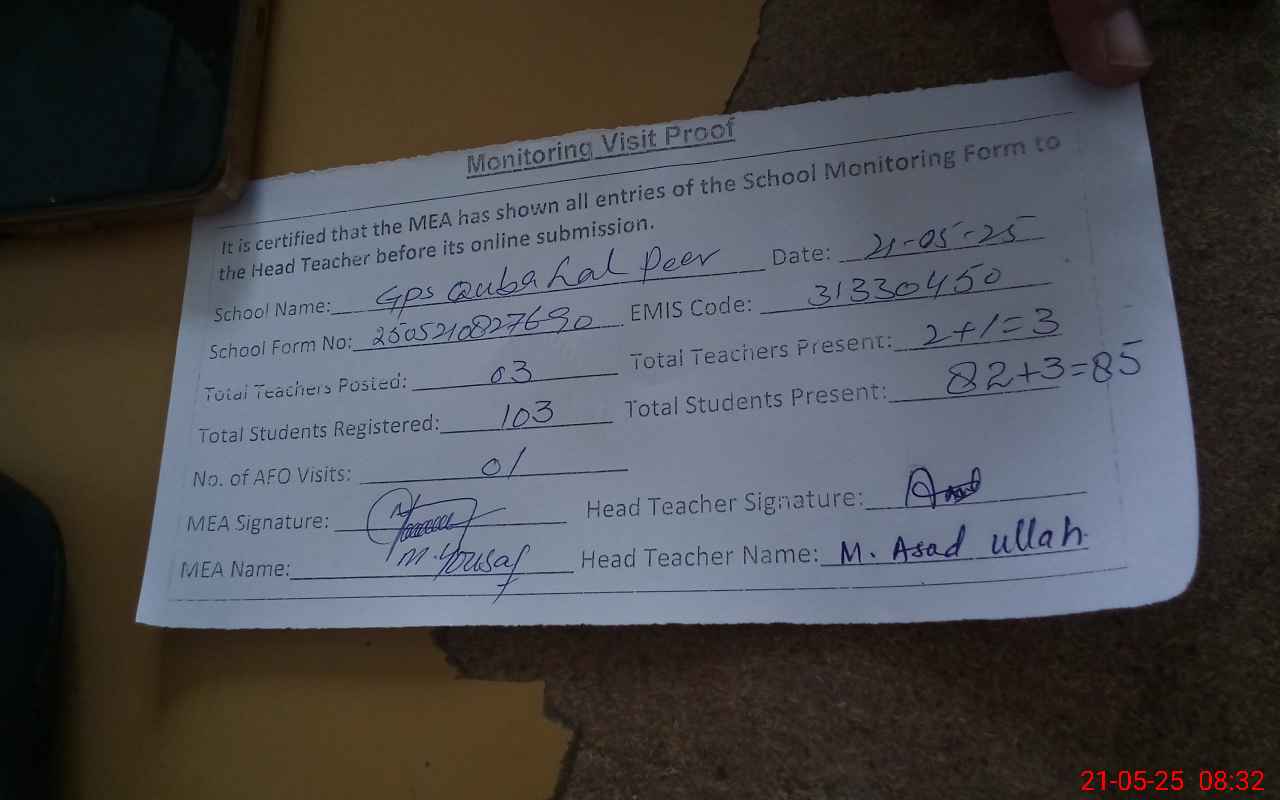 Monitoring Visit Proof
It is certified that the MEA has shown all entries of the School Monitoring Form to
the Head Teacher before its online submission.
School Name: GPS Quba Lal Peer Date: 21-05-25
School Form No: 2505210827690 EMIS Code: 31330450
Total Teachers Posted: 03 Total Teachers Present: 2+1=3
Total Students Registered: 103 Total Students Present: 82+3=85
No. of AFO Visits: 01
MEA Signature: Head Teacher Signature:
MEA Name: M. Yousaf Head Teacher Name: M. Asad ullah
21-05-25 08:32